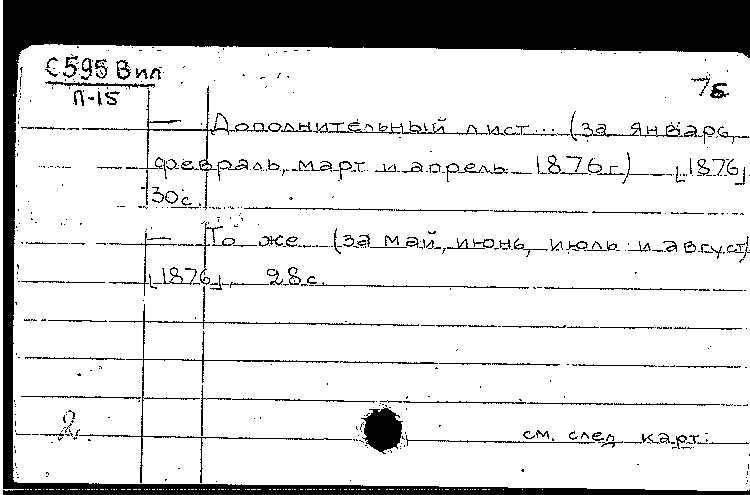 С595 Вил
П-15
7б
— Дополнительный лист... (за январь,
февраль, март и апрель 1876г) [1876]
30с.
— То же (за май, июнь, июль и август)
[1876], 28с.
2.
см. след карт.